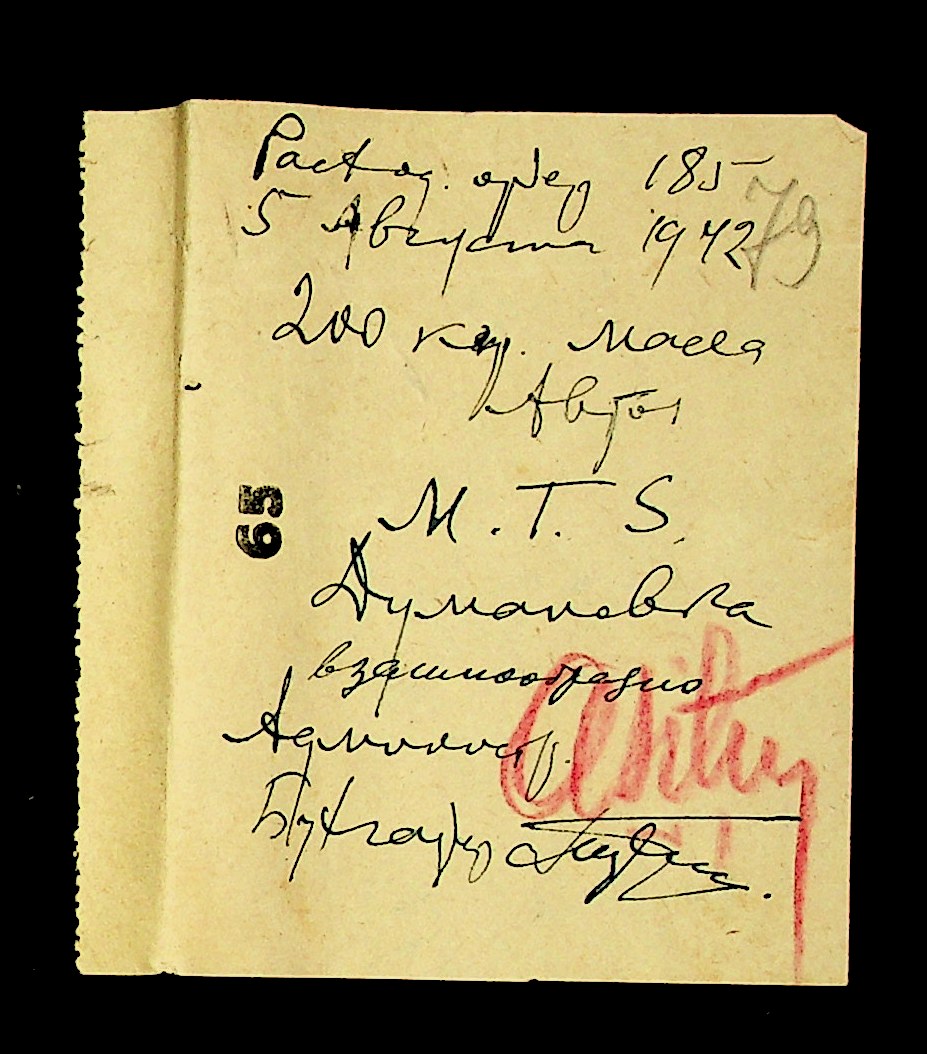 Расход. ордер 185
5 Августа 1942
79
200 кгр. масла
Автол
65
M. T. S.
Думановка
взаимообразно
Администр.
Бухгалтер